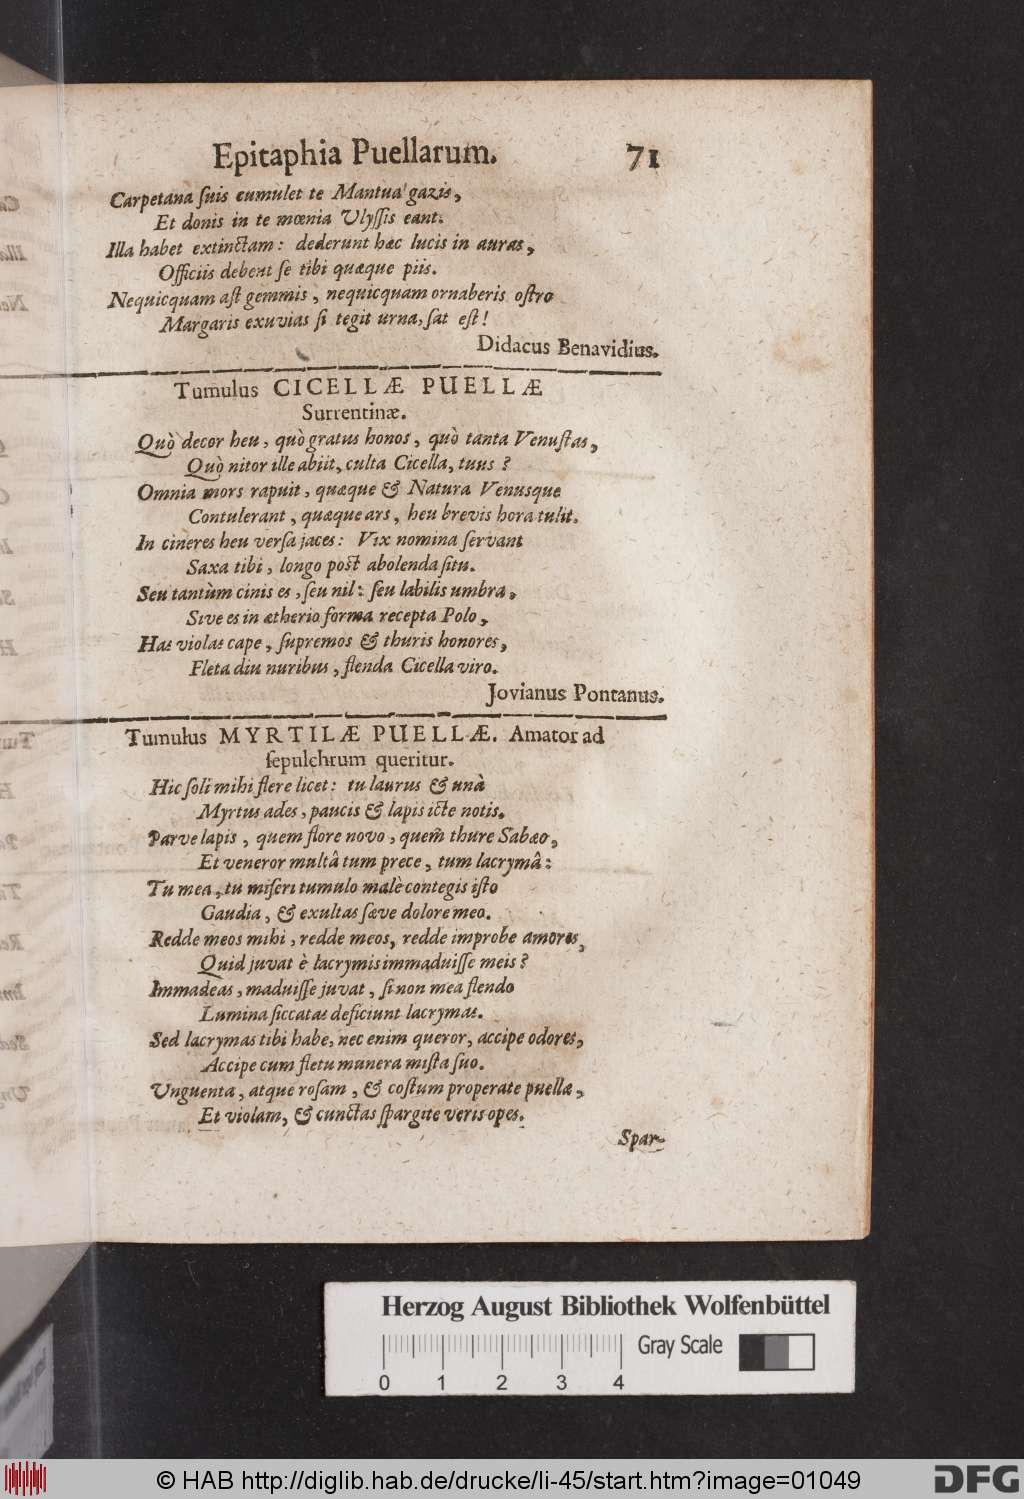 Epitaphia Puellarum. 71
Carpetana ſuis cumulet te Mantua gazis,
Et donis in te mœnia Ulyſſis eant.
Illa habet extinctam: dederunt hæc lucis in auras,
Officiis debent ſe tibi quæque piis.
Nequicquam aſt gemmis, nequicquam ornaberis oſtro
Margaris exuvias ſi tegit urna, ſat eſt!
Didacus Benavidius.
Tumulus CICELLÆ PUELLÆ
Surrentinæ.
Quò decor heu, quò gratus honos, quò tanta Venuſtas,
Quò nitor ille abiit, culta Cicella, tuus?
Omnia mors rapuit, quæque & Natura Venusque
Contulerant, quæque ars, heu brevis hora tulit.
In cineres heu verſa jaces: Vix nomina ſervant
Saxa tibi, longo poſt abolenda ſitu.
Seu tantùm cinis es, ſeu nil: ſeu labilis umbra,
Sive es in ætherio forma recepta Polo,
Has violas cape, ſupremos & thuris honores,
Fleta diu nuribus, flenda Cicella viro.
Jovianus Pontanus.
Tumulus MYRTILÆ PUELLÆ. Amator ad
ſepulchrum queritur.
Hic ſoli mihi flere licet: tu laurus & unà
Myrtus ades, paucis & lapis icte notis.
Parve lapis, quem flore novo, quem thure Sabæo,
Et veneror multâ tum prece, tum lacrymâ:
Tu mea, tu miſeri tumulo malè contegis iſto
Gaudia, & exultas ſæve dolore meo.
Redde meos mihi, redde meos, redde improbe amores,
Quid juvat è lacrymis immaduiſſe meis?
Immadeas, maduiſſe juvat, ſi non mea flendo
Lumina ſiccatas deficiunt lacrymas.
Sed lacrymas tibi habe, nec enim queror, accipe odores,
Accipe cum fletu munera miſta ſuo.
Unguenta, atque roſam, & coſtum properate puellæ,
Et violam, & cunctas ſpargite veris opes.
Spar-
Herzog August Bibliothek Wolfenbüttel
Gray Scale
0 1 2 3 4
© HAB http://diglib.hab.de/drucke/li-45/start.htm?image=01049
DFG